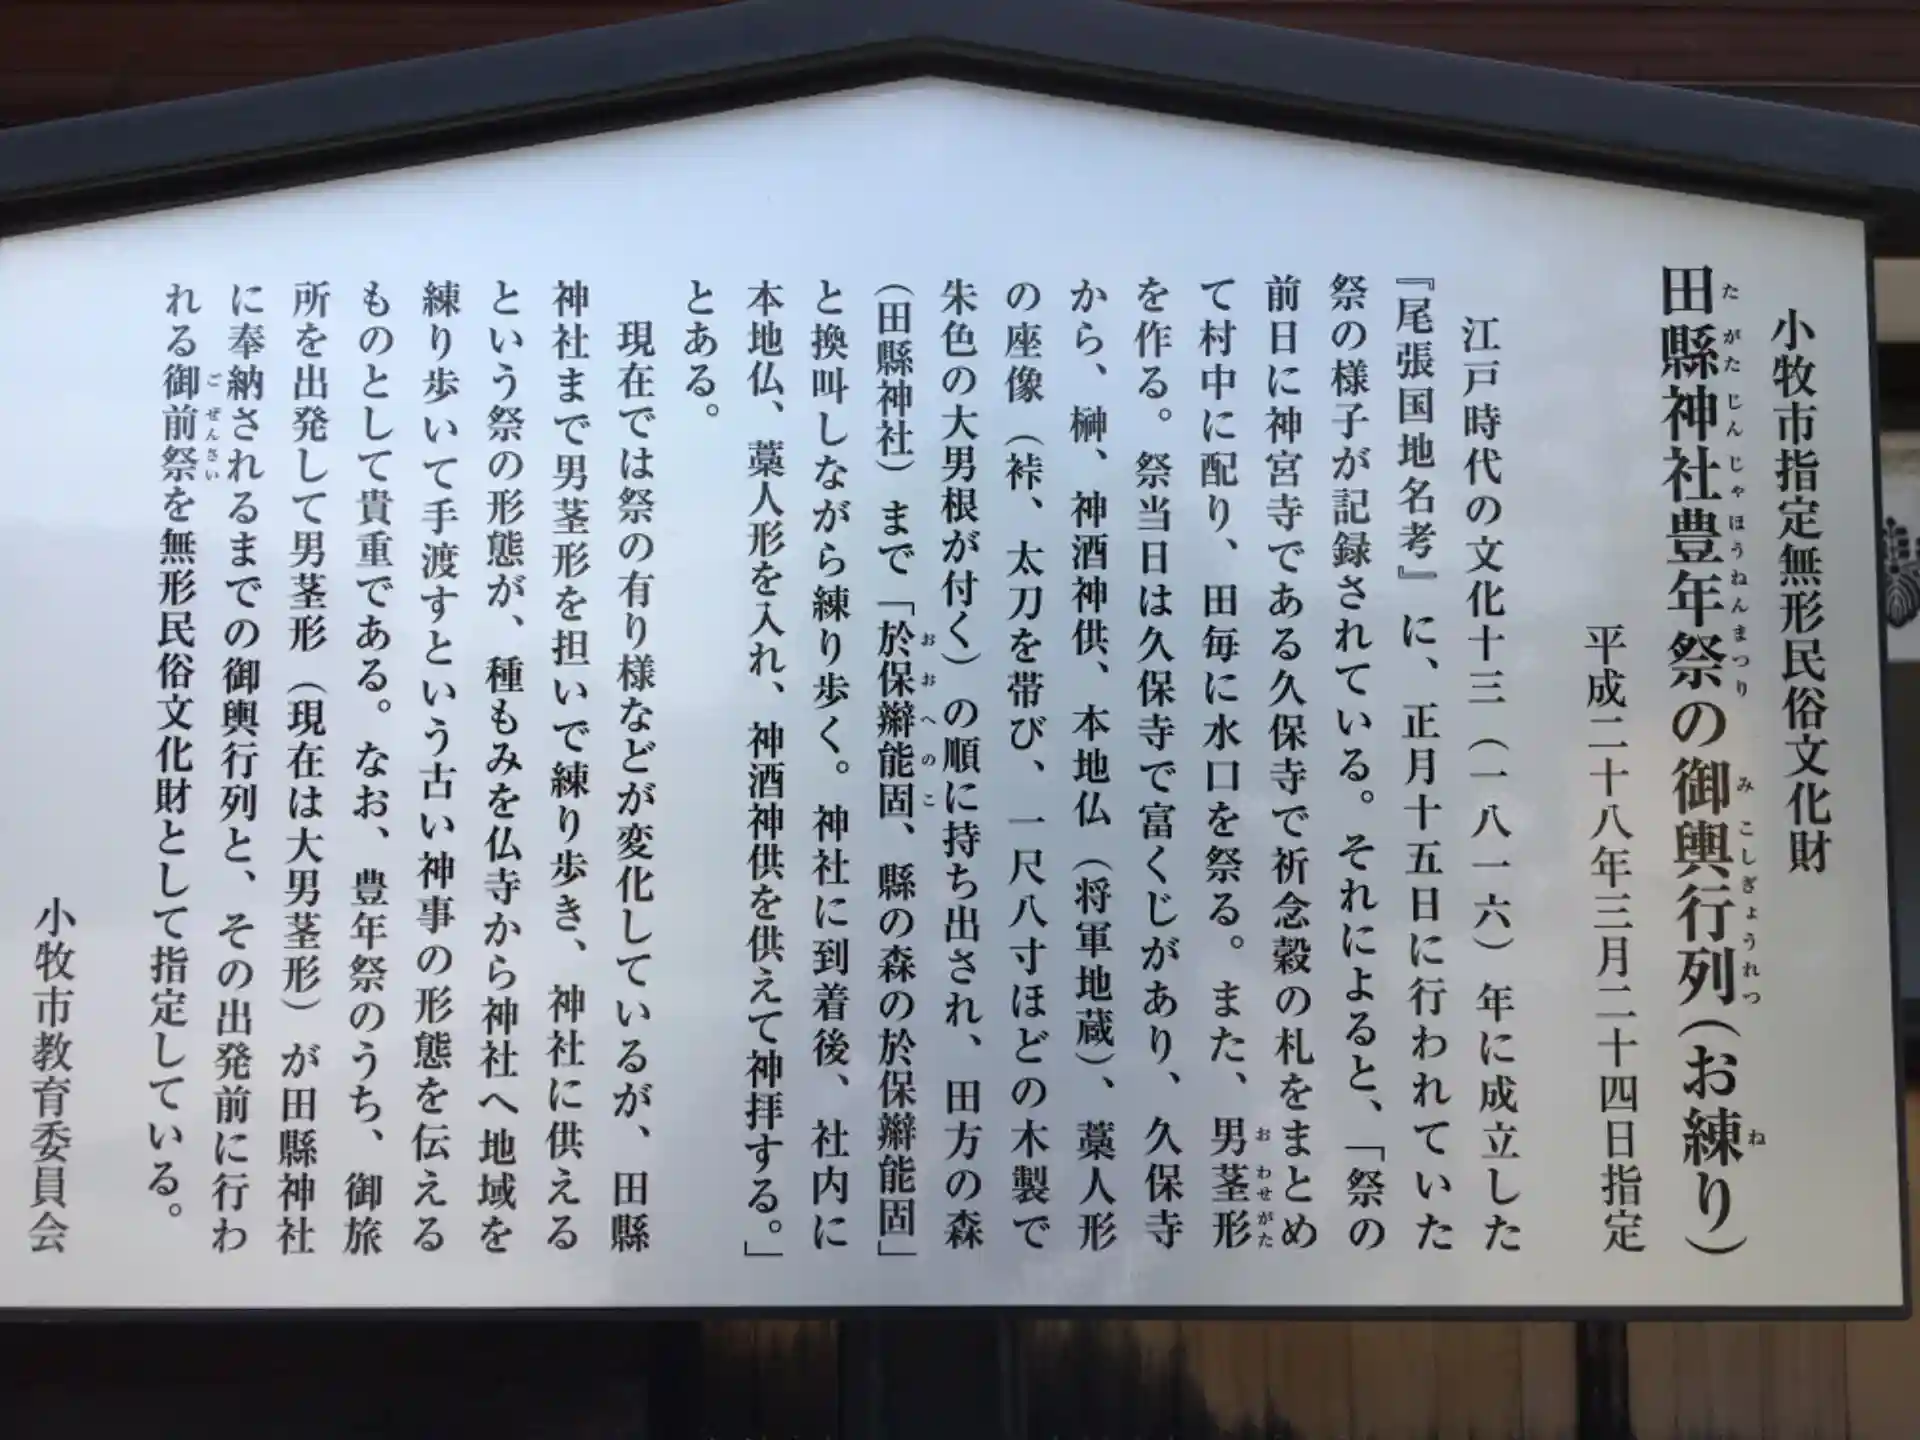 小牧市指定無形民俗文化財
田縣神社豊年祭の御輿行列（お練り）
たがたじんじゃほうねんまつり みこしぎょうれつ ね
平成二十八年三月二十四日指定
江戸時代の文化十三（一八一六）年に成立した
『尾張国地名考』に、正月十五日に行われていた
祭の様子が記録されている。それによると、「祭の
前日に神宮寺である久保寺で祈念穀の札をまとめ
て村中に配り、田毎に水口を祭る。また、男茎形
おわせがた
を作る。祭当日は久保寺で富くじがあり、久保寺
から、榊、神酒神供、本地仏（将軍地蔵）、藁人形
の座像（裃、太刀を帯び、一尺八寸ほどの木製で
朱色の大男根が付く）の順に持ち出され、田方の森
（田縣神社）まで「於保辧能固、縣の森の於保辧能固」
おおへのこ
と換叫しながら練り歩く。神社に到着後、社内に
本地仏、藁人形を入れ、神酒神供を供えて神拝する。」
とある。
現在では祭の有り様などが変化しているが、田縣
神社まで男茎形を担いで練り歩き、神社に供える
という祭の形態が、種もみを仏寺から神社へ地域を
練り歩いて手渡すという古い神事の形態を伝える
ものとして貴重である。なお、豊年祭のうち、御旅
所を出発して男茎形（現在は大男茎形）が田縣神社
に奉納されるまでの御輿行列と、その出発前に行わ
れる御前祭を無形民俗文化財として指定している。
ごぜんさい
小牧市教育委員会